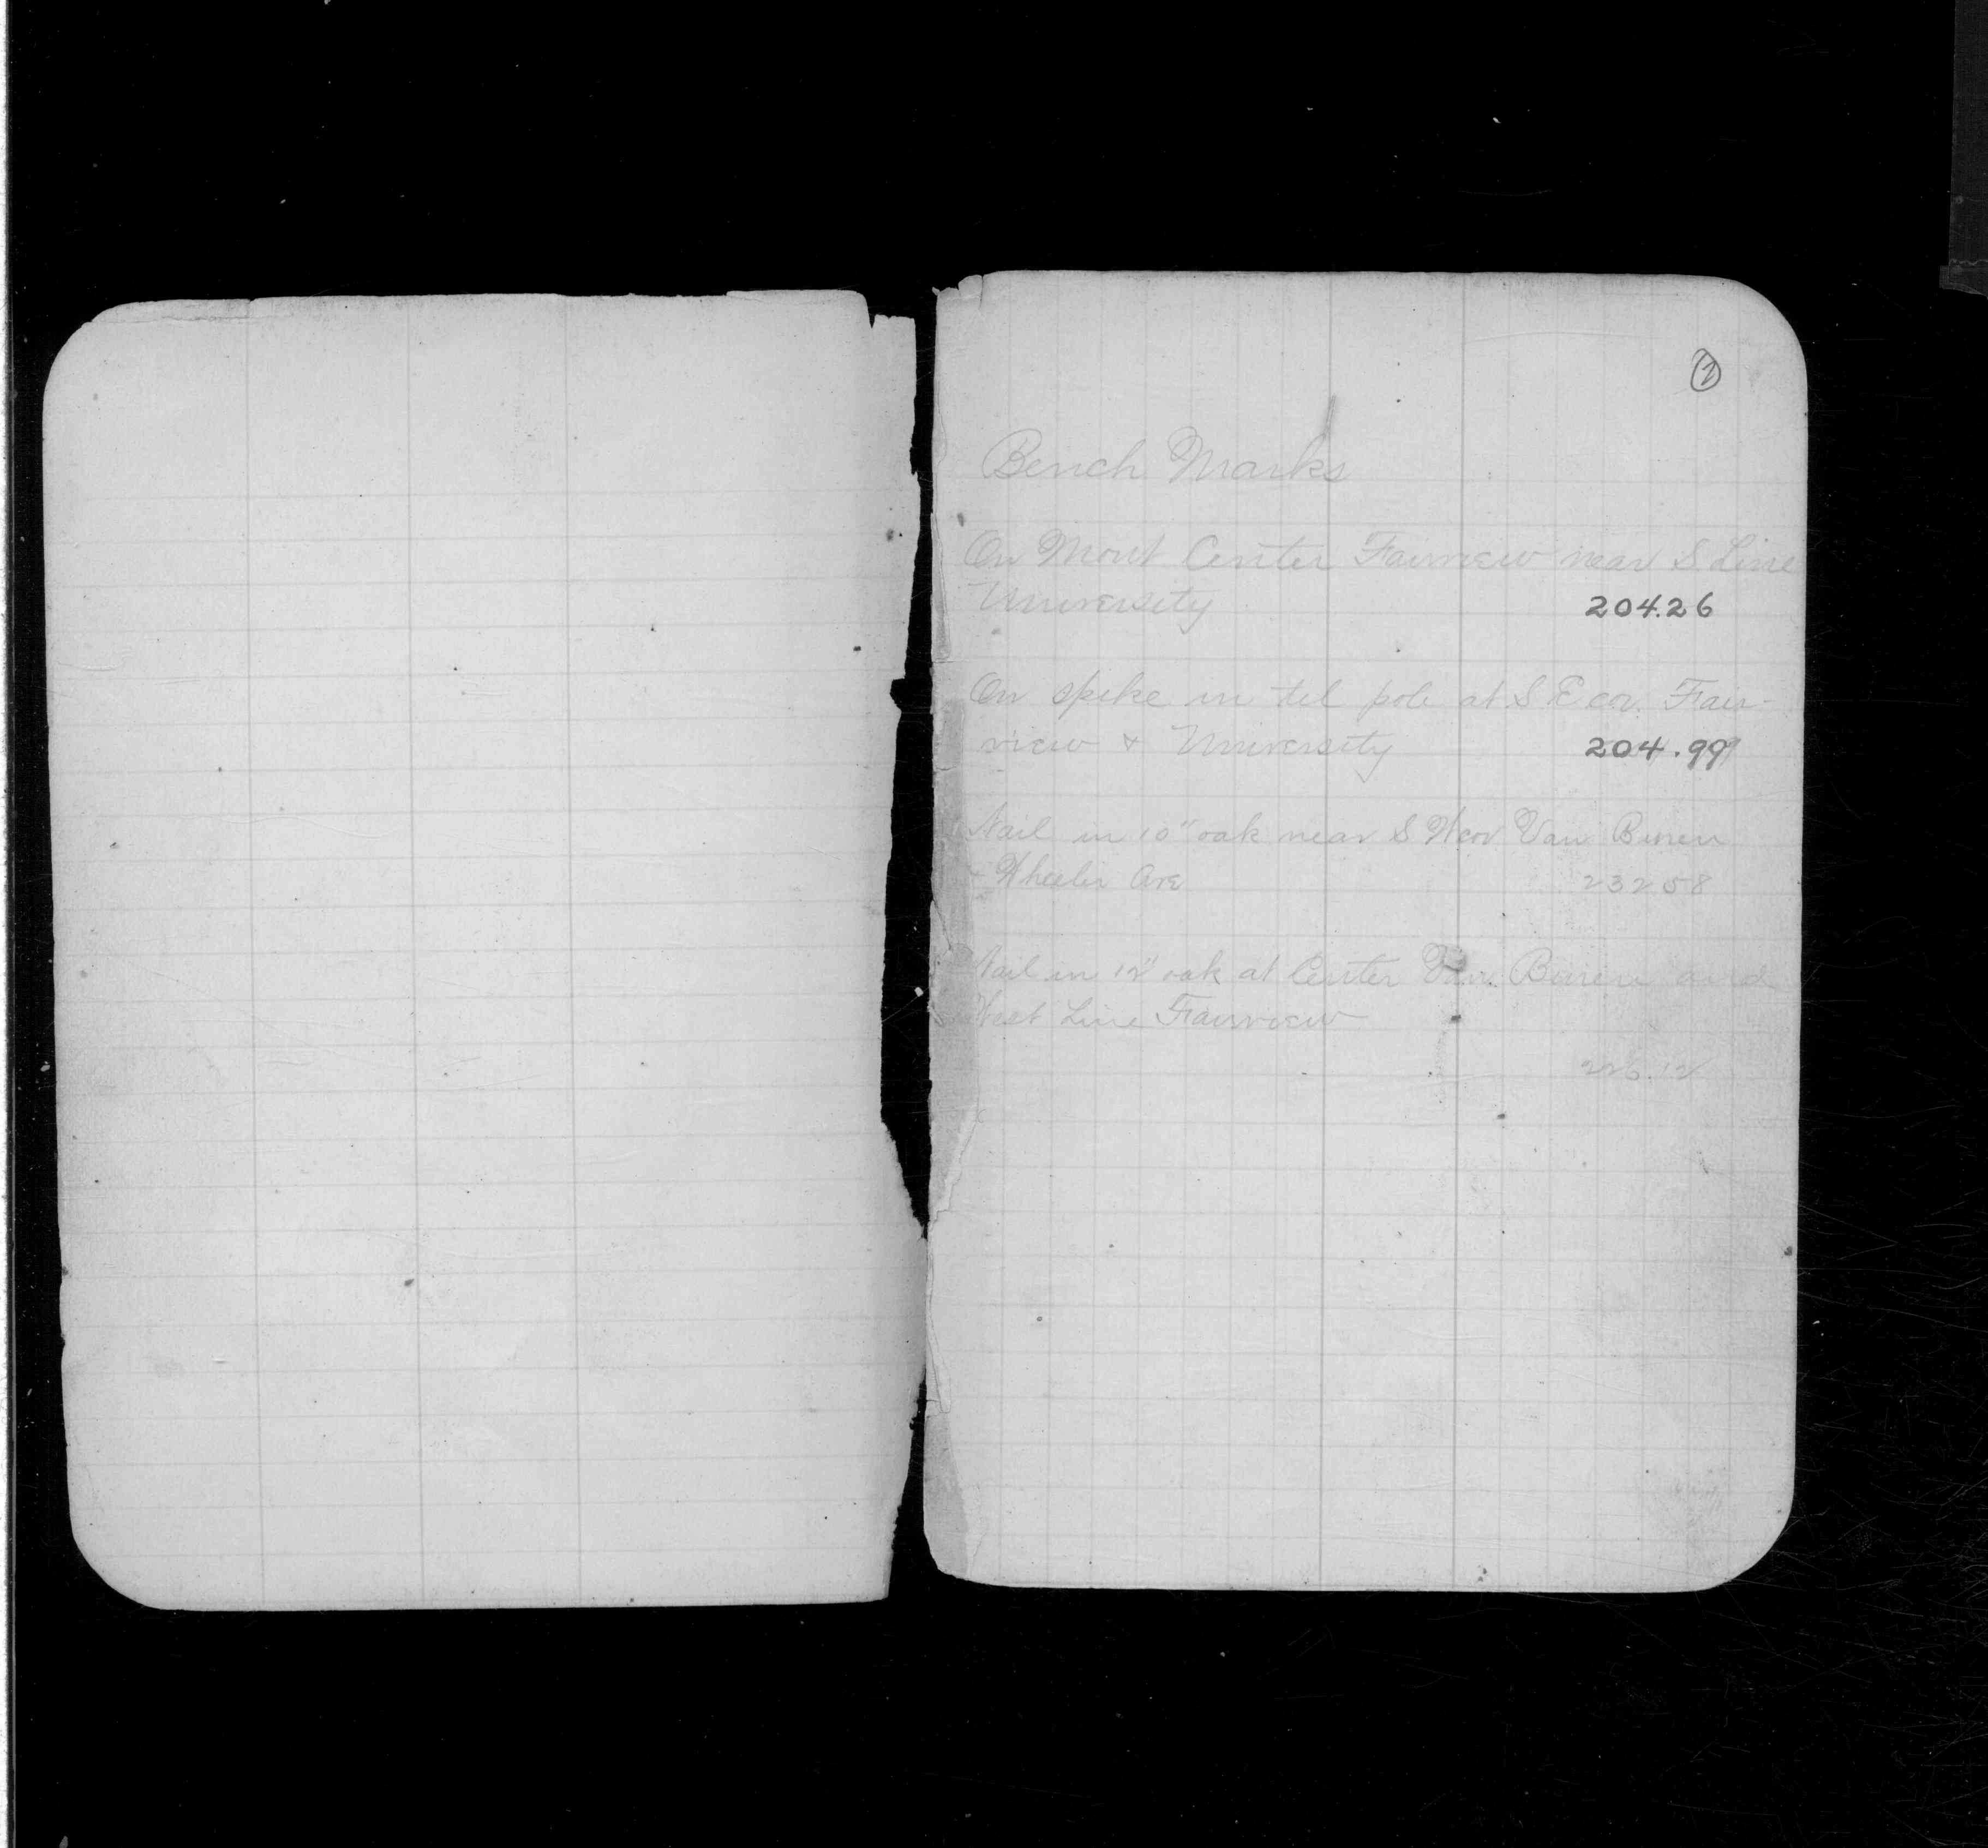 Bench Marks
On Mont Center Fairview near S Line
University 204.26
On spike in tel pole at S E cor. Fair-
view & University 204.99
Nail in 10" oak near S W cor Van Buren
& Wheeler Ave 232 58
Nail in 12" oak at Center Van Buren and
West Line Fairview